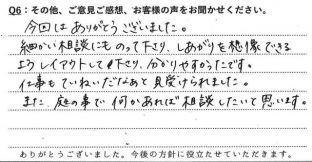 Q6：その他、ご意見ご感想、お客様の声をお聞かせください。
今回はありがとうございました。
細かい相談にものって下さり、しあがりを想像できる
ようレイアウトして下さり、分かりやすかったです。
仕事もていねいだなあと見受けられました。
また、庭の事で何かあれば相談したいと思います。
ありがとうございました。今後の方針に役立たせていただきます。